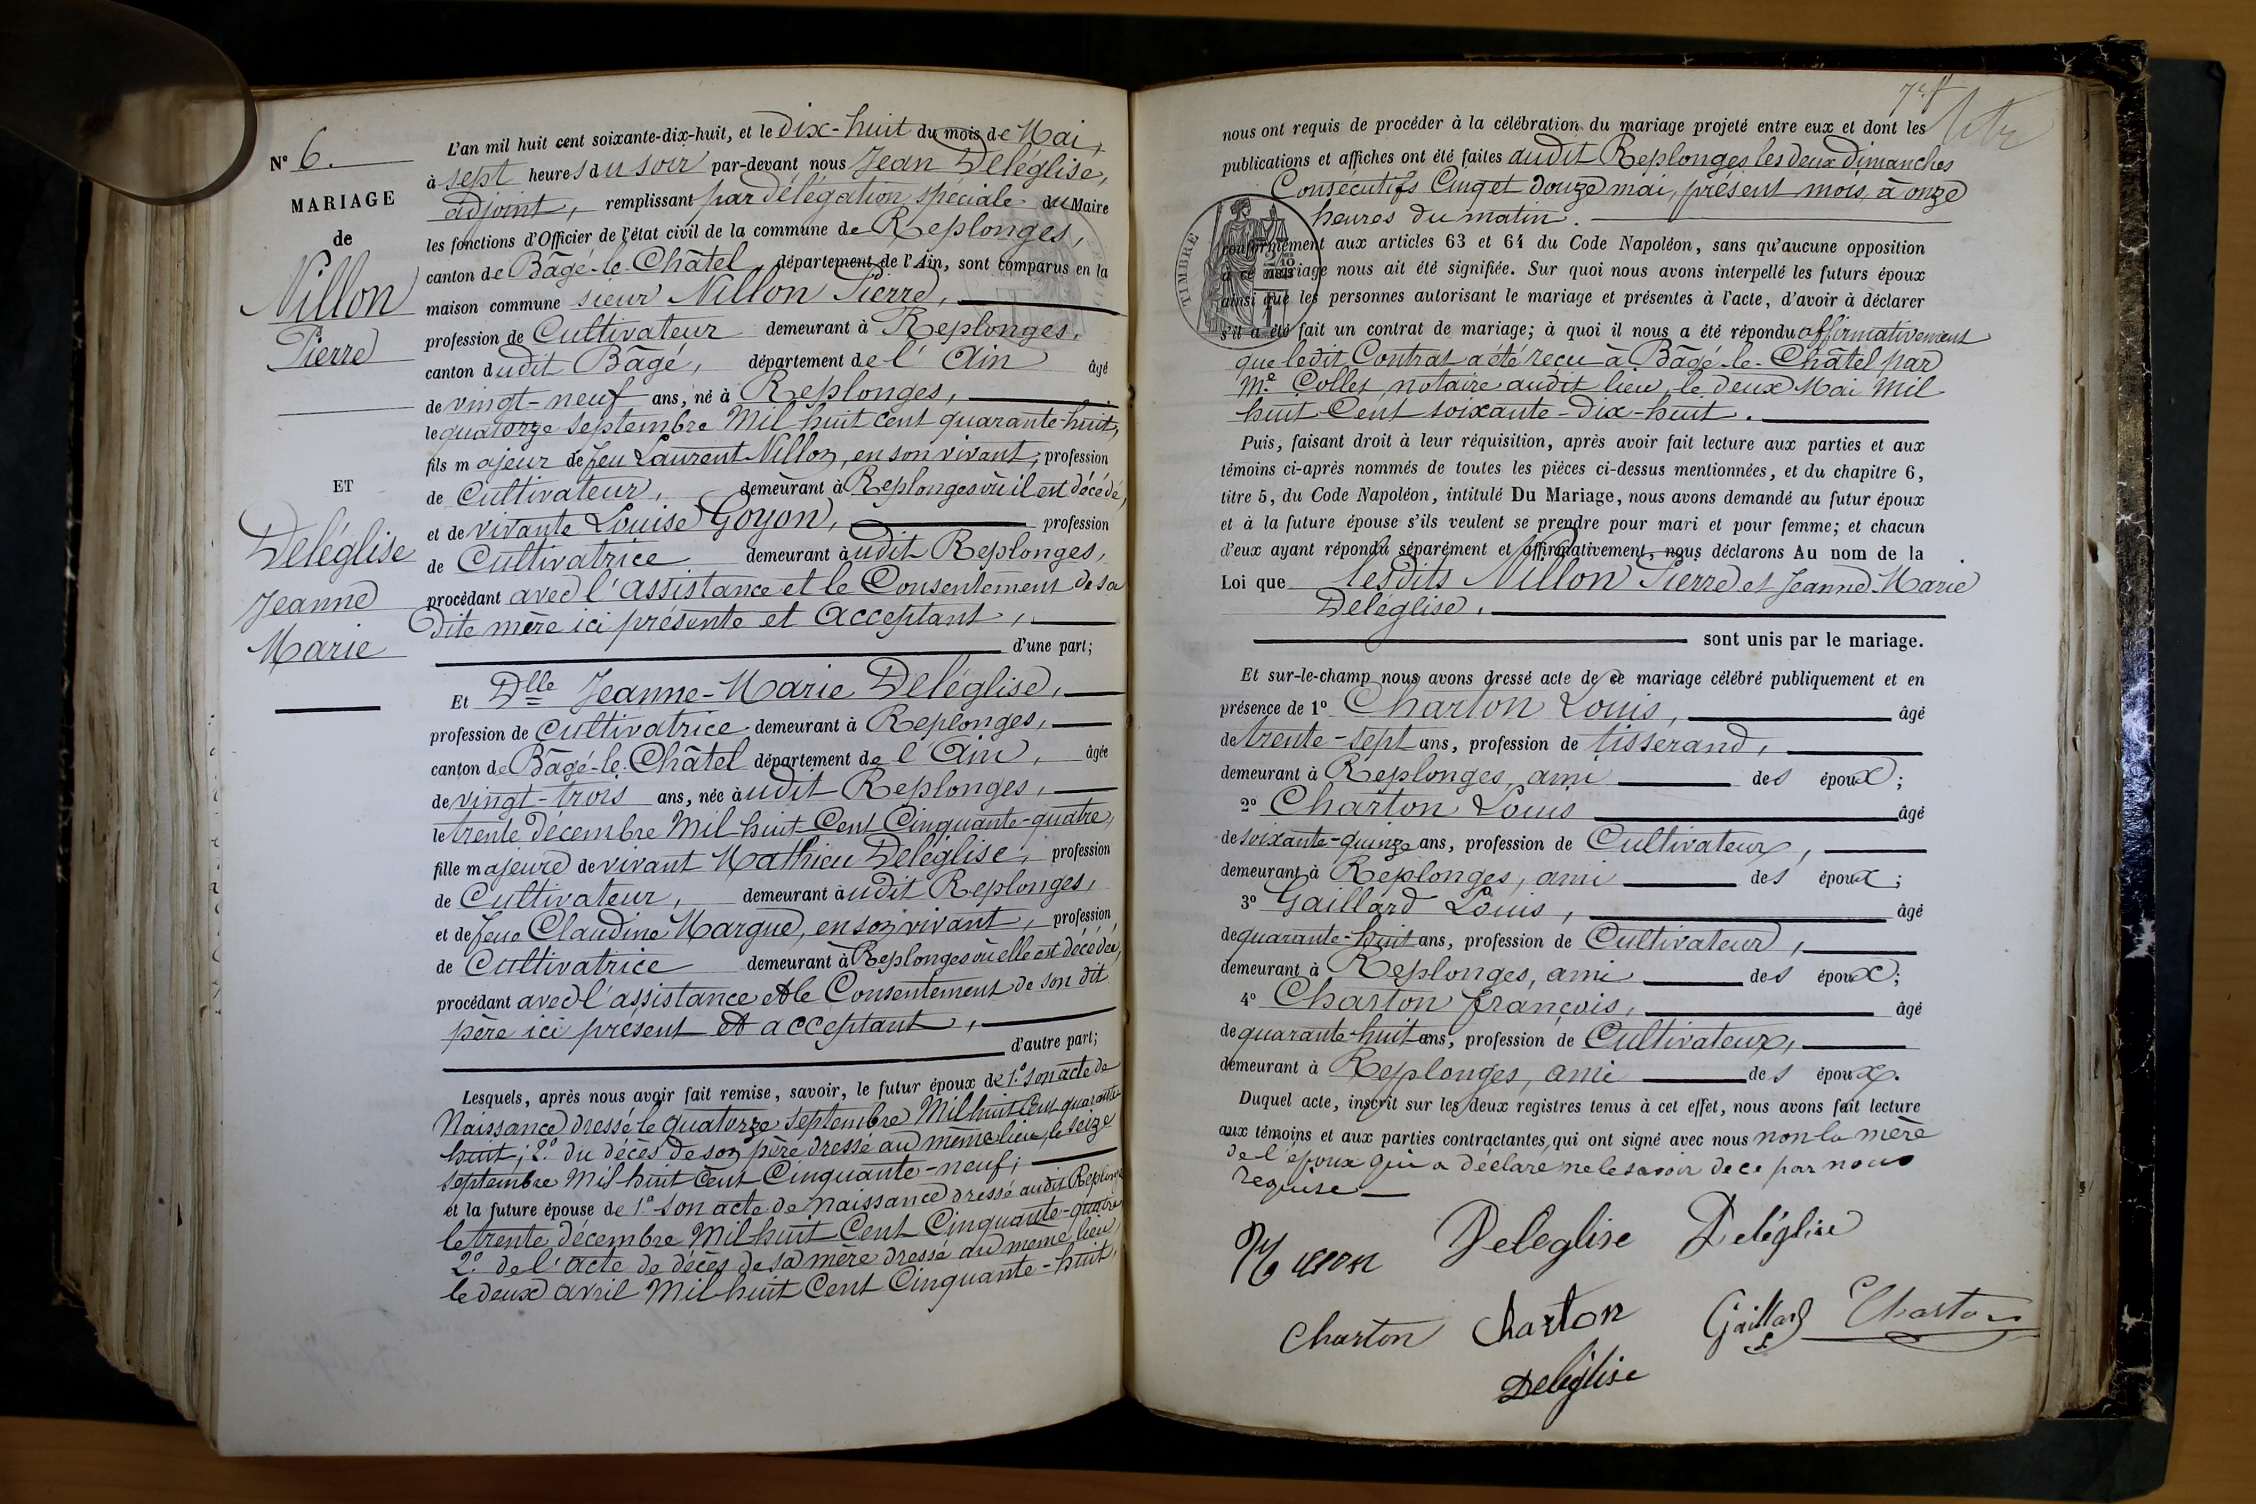 N° 6.
MARIAGE
de
Nillon
Pierre
ET
Deléglise
Jeanne
Marie
L'an mil huit cent soixante-dix-huit, et le dix-huit du mois de Mai,
à sept heures du soir par-devant nous Jean Deléglise,
adjoint, remplissant par délégation spéciale du Maire
les fonctions d'Officier de l'état civil de la commune de Replonges,
canton de Bâgé-le-Châtel, département de l'Ain, sont comparus en la
maison commune sieur Nillon Pierre,
profession de Cultivateur demeurant à Replonges,
canton dudit Bâgé, département de l'Ain âgé
de vingt-neuf ans, né à Replonges,
le quatorze septembre Mil huit cent quarante-huit,
fils majeur de feu Laurent Nillon, en son vivant, profession
de Cultivateur, demeurant à Replonges où il est décédé,
et de vivante Louise Goyon, profession
de Cultivatrice demeurant àudit Replonges,
procédant avec l'assistance et le Consentement de sa
dite mère ici présente et acceptant,
d'une part;
Et Dlle Jeanne-Marie Deléglise,
profession de Cultivatrice demeurant à Replonges,
canton de Bâgé-le-Châtel département de l'Ain, âgée
de vingt-trois ans, née àudit Replonges,
le trente décembre Mil huit Cent Cinquante-quatre,
fille majeure de vivant Mathieu Deléglise, profession
de Cultivateur, demeurant àudit Replonges,
et de feue Claudine Margue, en son vivant, profession
de Cultivatrice demeurant à Replonges où elle est décédée,
procédant avec l'assistance et le Consentement de son dit
père ici présent et acceptant,
d'autre part;
Lesquels, après nous avoir fait remise, savoir, le futur époux de 1.° son acte de
Naissance dressé le quatorze septembre Mil huit Cent quarante
huit; 2.° du décès de son père dressé au même lieu, le seize
septembre Mil huit Cent Cinquante-neuf;
et la future épouse de 1.° son acte de naissance dressé audit Replonges
le trente décembre Mil huit Cent Cinquante-quatre
2.° de l'acte de décès de sa mère dressé au même lieu,
le deux avril Mil huit Cent Cinquante-huit,
nous ont requis de procéder à la célébration du mariage projeté entre eux et dont les
publications et affiches ont été faites audit Replonges les deux dimanches
Consécutifs Cinq et Douze mai, présent mois, à onze
heures du matin.
TIMBRE
conformément aux articles 63 et 64 du Code Napoléon, sans qu'aucune opposition
à ce mariage nous ait été signifiée. Sur quoi nous avons interpellé les futurs époux
ainsi que les personnes autorisant le mariage et présentes à l'acte, d'avoir à déclarer
s'il a été fait un contrat de mariage; à quoi il nous a été répondu affirmativement
que ledit Contrat a été reçu à Bâgé-le-Châtel par
Me Collet, notaire audit lieu, le deux Mai Mil
huit Cent soixante-dix-huit.
Puis, faisant droit à leur réquisition, après avoir fait lecture aux parties et aux
témoins ci-après nommés de toutes les pièces ci-dessus mentionnées, et du chapitre 6,
titre 5, du Code Napoléon, intitulé Du Mariage, nous avons demandé au futur époux
et à la future épouse s'ils veulent se prendre pour mari et pour femme; et chacun
d'eux ayant répondu séparément et affirmativement, nous déclarons Au nom de la
Loi que lesdits Nillon Pierre et Jeanne-Marie
Deléglise,
sont unis par le mariage.
Et sur-le-champ nous avons dressé acte de ce mariage célébré publiquement et en
présence de 1° Charton Louis, âgé
de trente-sept ans, profession de tisserand,
demeurant à Replonges, ami des époux;
2° Charton Louis âgé
de soixante-quinze ans, profession de Cultivateur,
demeurant à Replonges, ami des époux;
3° Gaillard Louis, âgé
de quarante-huit ans, profession de Cultivateur,
demeurant à Replonges, ami des époux;
4° Charton françois, âgé
de quarante-huit ans, profession de Cultivateur,
demeurant à Replonges, ami des époux.
Duquel acte, inscrit sur les deux registres tenus à cet effet, nous avons fait lecture
aux témoins et aux parties contractantes, qui ont signé avec nous non la mère
de l'époux qui a déclaré ne le savoir de ce par nous
requise
Nillon Deleglise Deléglise
Charton Charton Gaillard L Charton
Deléglise